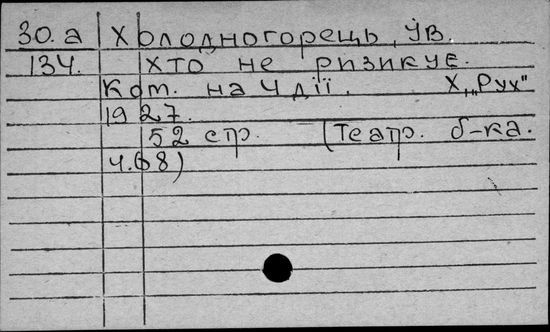 30.а Холодногорець, Ів.
134. Хто не ризикує.
Ком. на 4 дії. Х., „Рух"
1927.
52 стр. (Театр. б-ка.
ч. 68)